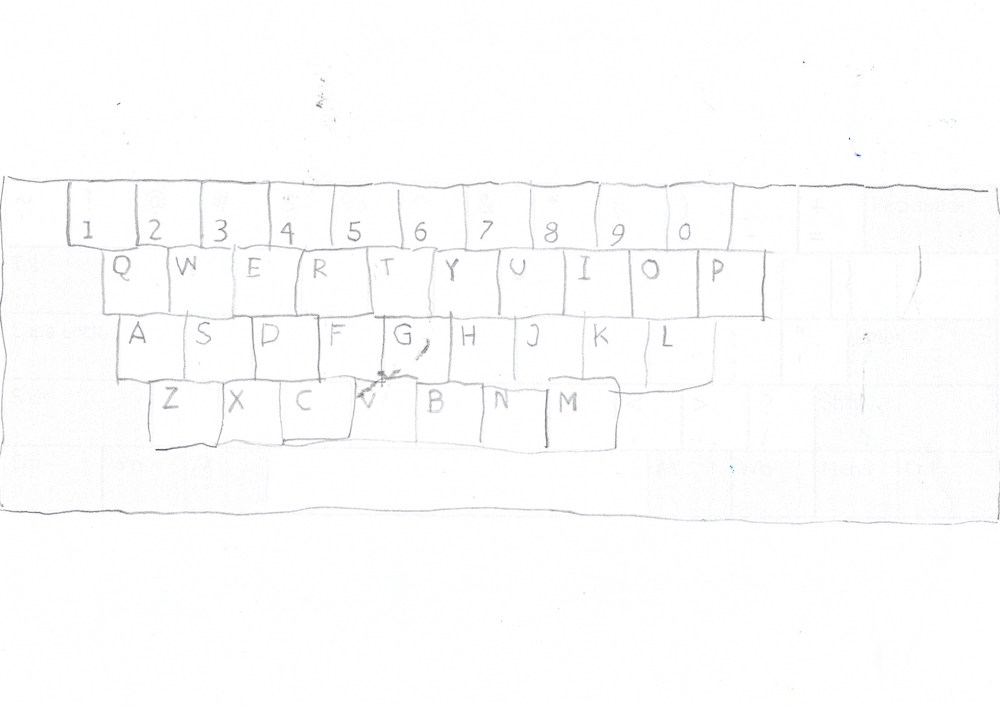 1 2 3 4 5 6 7 8 9 0
Q W E R T Y U I O P
A S D F G H J K L
Z X C V B N M